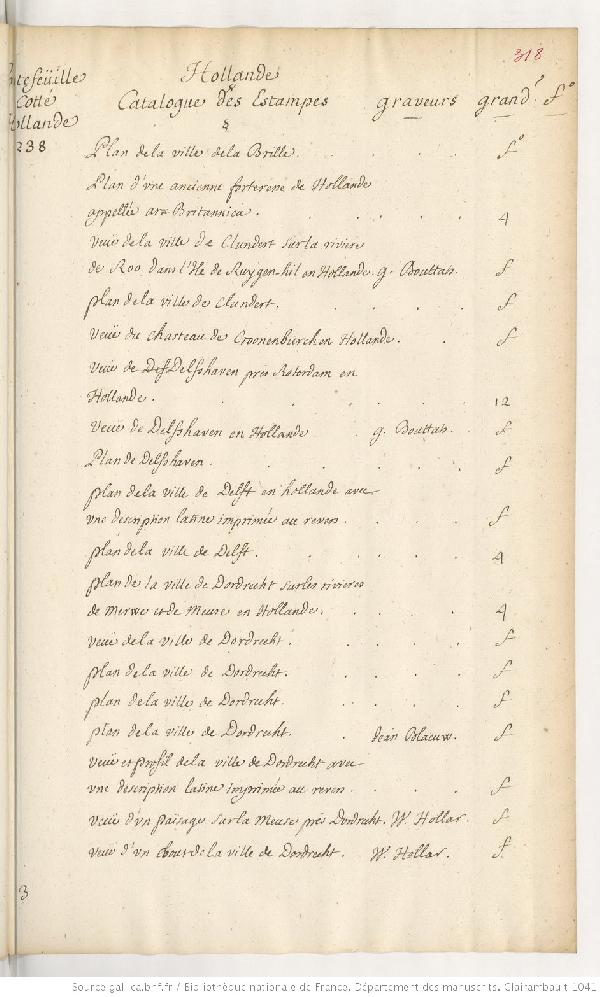 318
Hollande
Portefeüille
Cotté
Hollande
238
Catalogue des Estampes graveurs grandr fo
8
Plan de la ville de la Brille. fo
Plan d'vne ancienne forterene de Hollande
appellée ara Britannica. 4
veüe de la ville de Clundert sur la riviere
de Roo dans l'Ile de Ruygen-hil en Hollande. g. Bouttah. f
plan de la ville de Clundert. f
veüe du chasteau de Croonenburch en Hollande. f
veüe de Delfshaven pres Roterdam en
Hollande. 12
veüe de Delfshaven en Hollande g. Bouttah. f
Plan de Delfshaven. f
plan de la ville de Delft en hollande avec
vne description latine imprimée au revers. f
plan de la ville de Delft. 4
plan de la ville de Dordrecht sur les rivieres
de Merwe et de Meuse en Hollande. 4
veüe de la ville de Dordrecht. f
plan de la ville de Dordrecht. f
plan de la ville de Dordrecht. f
plan de la ville de Dordrecht. Jean Blaeuw. f
veüe et profil de la ville de Dordrecht avec
vne description latine imprimée au revers. f
veüe d'vn paisage sur la Meuse près Dordrecht. W. Hollar. f
veüe d'vn bout de la ville de Dordrecht. W. Hollar. f.
3
Source gallica.bnf.fr / Bibliothèque nationale de France. Département des manuscrits. Clairambault 1041